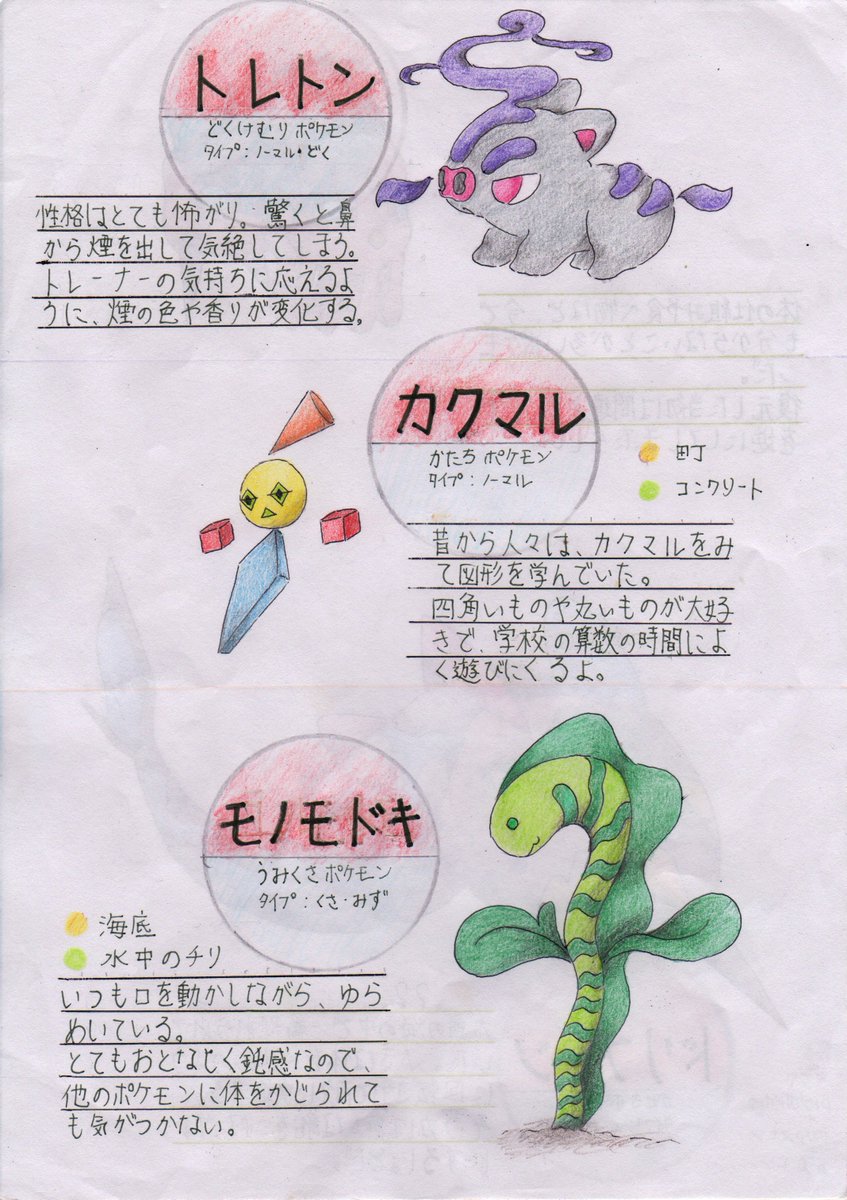 トレトン
どくけむりポケモン
タイプ：ノーマル・どく
性格はとても怖がり。驚くと鼻
から煙を出して気絶してしまう。
トレーナーの気持ちに応えるよ
うに、煙の色や香りが変化する。
カクマル
かたちポケモン
タイプ：ノーマル
町
コンクリート
昔から人々は、カクマルをみ
て図形を学んでいた。
四角いものや丸いものが大好
きで、学校の算数の時間によ
く遊びにくるよ。
モノモドキ
うみくさポケモン
タイプ：くさ・みず
海底
水中のチリ
いつも口を動かしながら、ゆら
めいている。
とてもおとなしく鈍感なので、
他のポケモンに体をかじられて
も気がつかない。